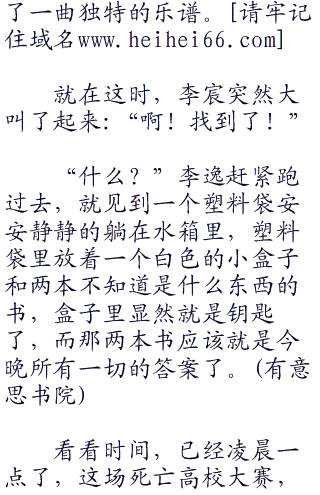 了一曲独特的乐谱。[请牢记
住域名www.heihei66.com]
就在这时，李宸突然大
叫了起来：“啊！找到了！”
“什么？”李逸赶紧跑
过去，就见到一个塑料袋安
安静静的躺在水箱里，塑料
袋里放着一个白色的小盒子
和两本不知道是什么东西的
书，盒子里显然就是钥匙
了，而那两本书应该就是今
晚所有一切的答案了。(有意
思书院)
看看时间，已经凌晨一
点了，这场死亡高校大赛，